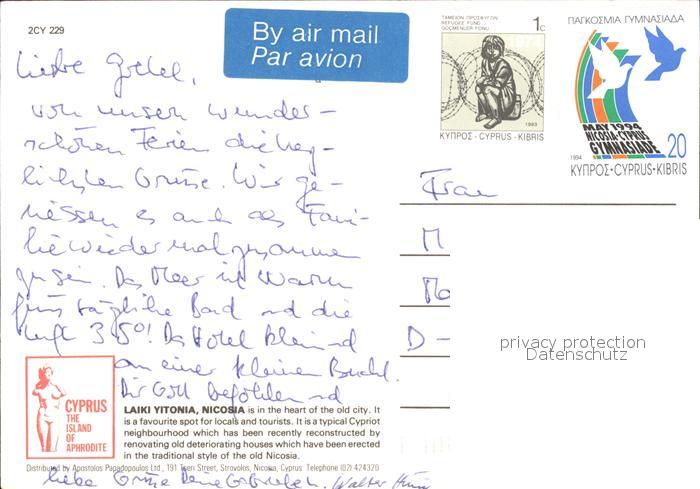 2CY 229
By air mail
Par avion
ΤΑΜΕΙΟΝ ΠΡΟΣΦΥΓΩΝ
REFUGEE FUND
GÖÇMENLER FONU
1c
1974
1993
ΚΥΠΡΟΣ - CYPRUS - KIBRIS
ΠΑΓΚΟΣΜΙΑ ΓΥΜΝΑΣΙΑΔΑ
MAY 1994
NICOSIA-CYPRUS
GYMNASIADE
20
1994
ΚΥΠΡΟΣ·CYPRUS·KIBRIS
Liebe
von unseren wunder-
schönen Ferien die herz-
lichsten Grüsse. Wir ge-
niessen es auch als Fami-
lie wieder mal zusammen
zu sein. Das Meer ist warm
fürs tägliche Bad und die
Luft 35°! Das Hotel klein und
an einer kleinen Bucht.
Dir Gott befohlen und
liebe Grüsse Deine Walter
Frau
M
Ma
D -
privacy protection
Datenschutz
CYPRUS
THE
ISLAND
OF
APHRODITE
LAIKI YITONIA, NICOSIA is in the heart of the old city. It
is a favourite spot for locals and tourists. It is a typical Cypriot
neighbourhood which has been recently reconstructed by
renovating old deteriorating houses which have been erected
in the traditional style of the old Nicosia.
Distributed by Apostolos Papadopoulos Ltd., 191 Tseri Street, Strovolos, Nicosia, Cyprus. Telephone (02) 424320